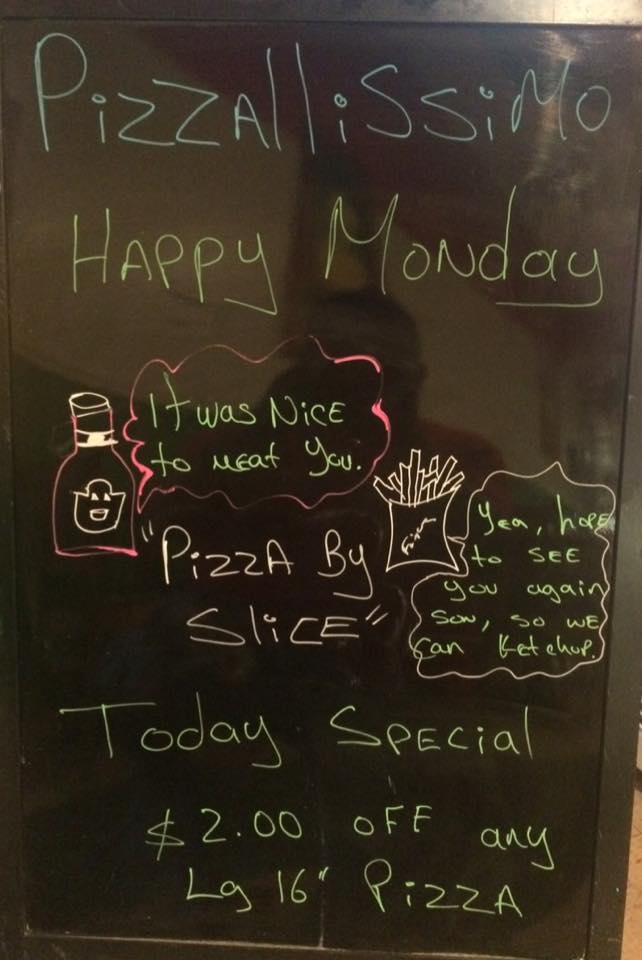 Pizzallissimo
Happy Monday
It was Nice
to meat You.
"Pizza By
Slice"
Yea, hope
to see
you again
son, so we
can ketchup.
Today Special
$2.00 off any
Lg 16" Pizza